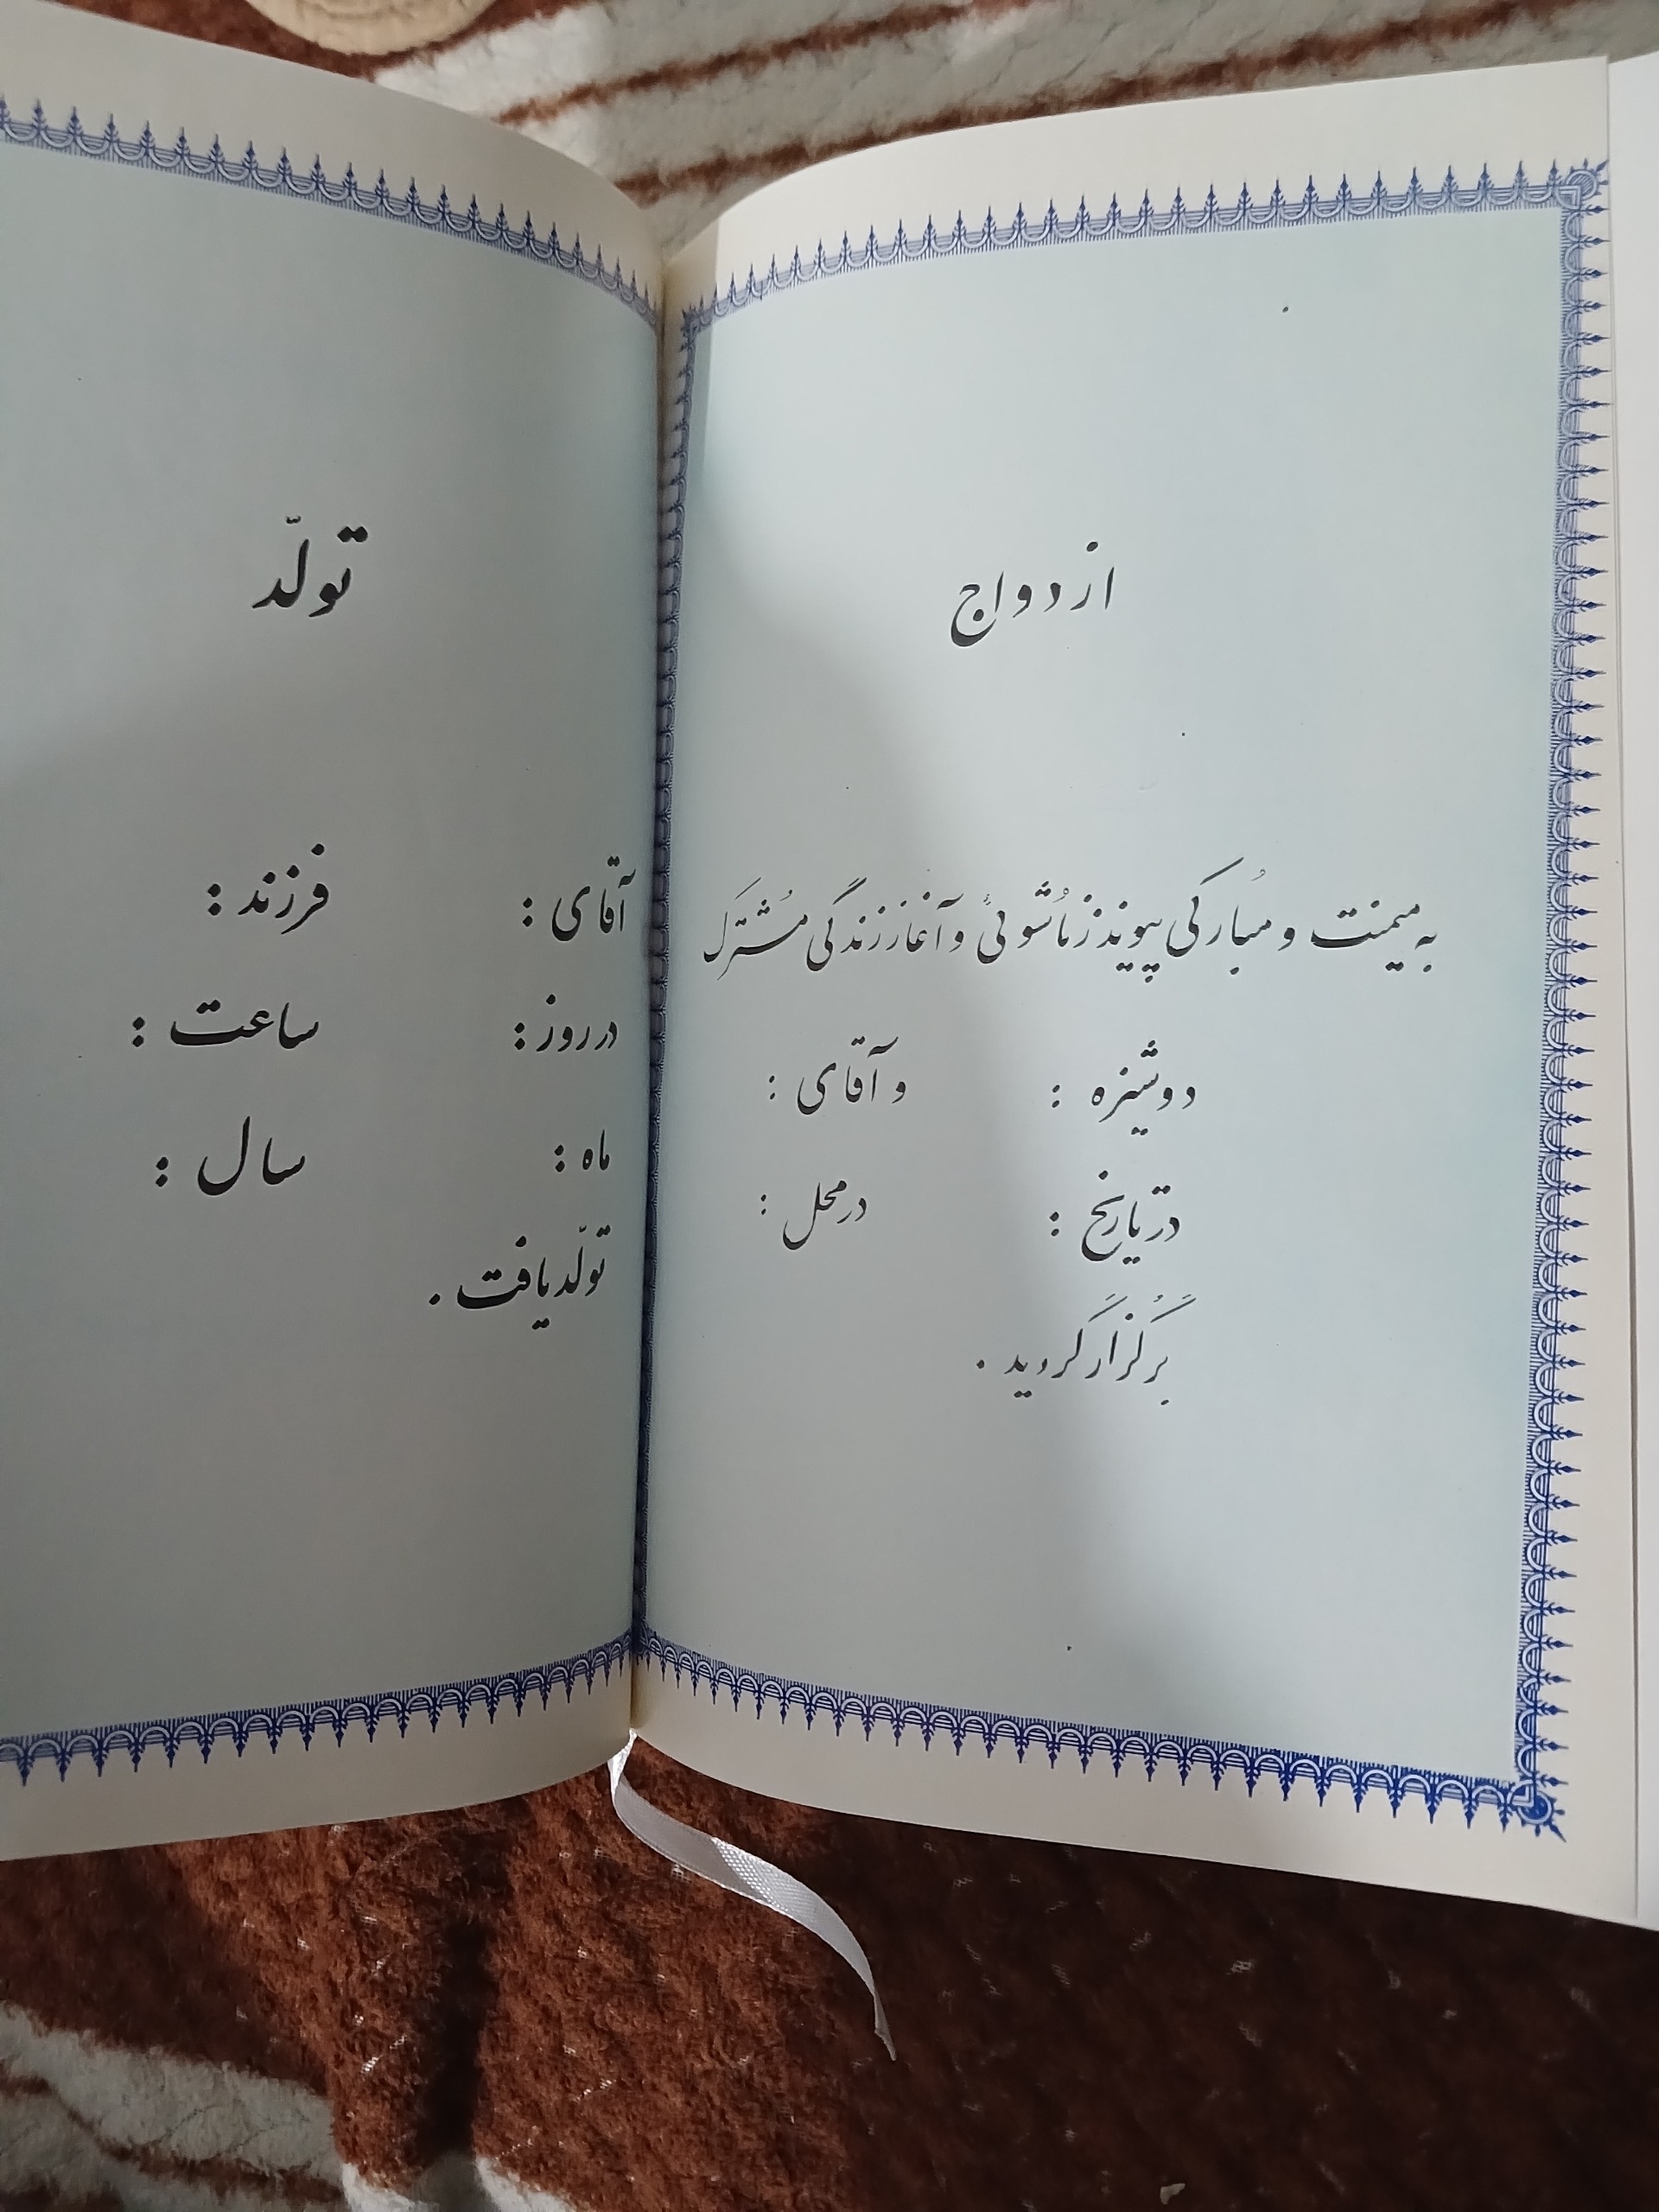 ازدواج
به میمنت و مبارکی پیوند زناشوئی و آغاز زندگی مشترک
دوشیزه : و آقای :
در تاریخ : در محل :
برگزار گردید .
تولّد
آقای : فرزند :
در روز : ساعت :
ماه : سال :
تولّد یافت .